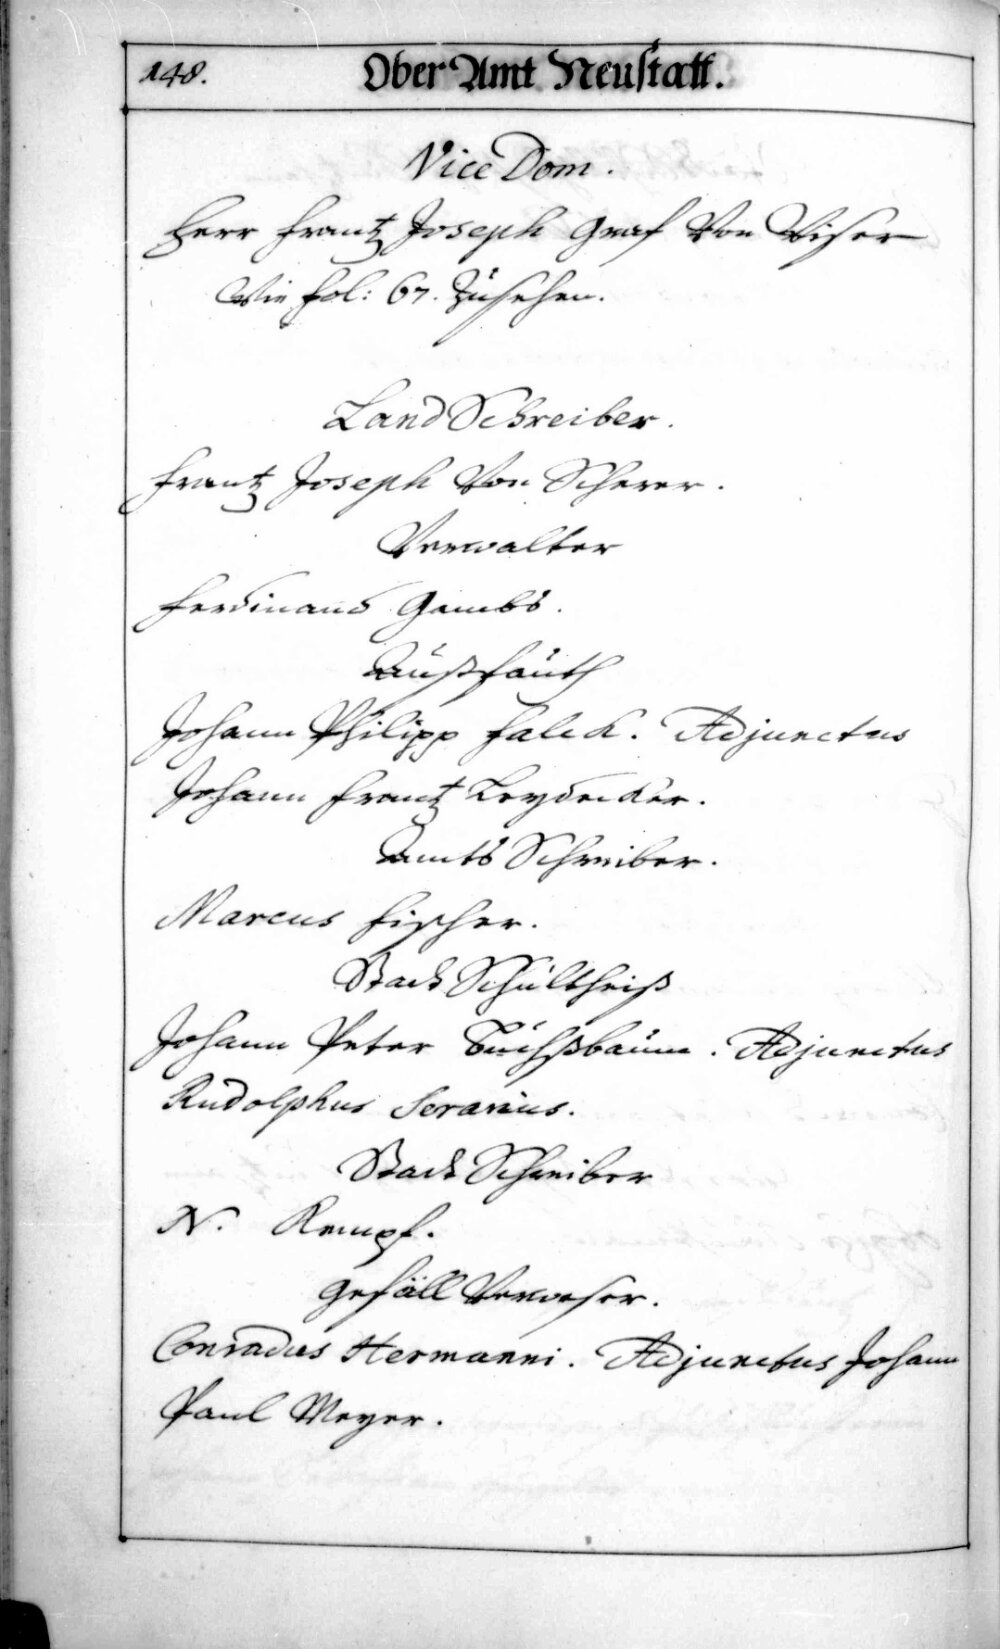 148.
Ober Amt Neustatt.
Vice Dom.
Herr Frantz Joseph Graf Von Viser
Wie fol: 67. Zusehen.
Land Schreiber.
Frantz Joseph Von Scherer.
Verwalter
Ferdinand Gambs.
Außfauth
Johann Philipp Falck. Adjunctus
Johann Frantz Leydecker.
Ambts Schreiber.
Marcus Fischer.
Stadt Schultheiß
Johann Peter Buchßbaum. Adjunctus
Rudolphus Serarius.
Stadt Schreiber
N. Kempf.
Gefäll Verweser.
Conradus Hermanni. Adjunctus Johann
Paul Meyer.